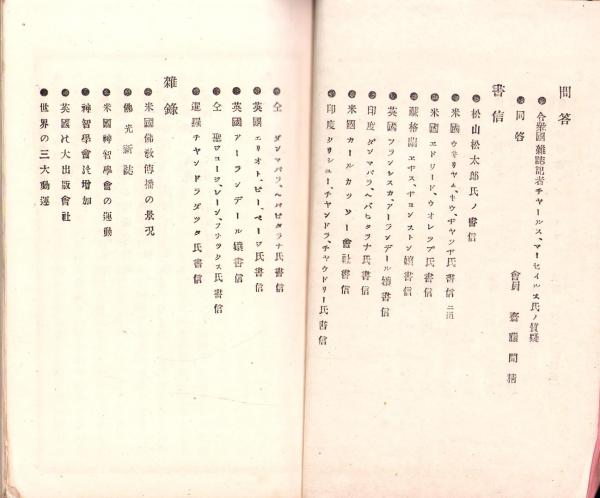 問答
●合衆國雜誌記者チャールス、マーセイルス氏ノ質疑
●同答
會員 齋藤聞精
書信
●松山松太郎氏ノ書信
●米國ウヰリヤム、キウ、ヂヤッヂ氏書信二通
●米國エドリード、ウオレッブ氏書信
●蘇格蘭エヤス、ヂョンストン孃書信
●英國フランシスカ、アーランデール孃書信
●印度ダンマパラ、ヘバヒタラナ氏書信
●米國カールカッソー會社書信
●印度クリシュー、チャンドラ、チャウドリー氏書信
●仝 ダンマパラ、ヘバヒタラナ氏書信
●英國エリオト、ビー、ページ氏書信
●英國アーランデール孃書信
●仝 聖ヲージ、レーン、フヲックス氏書信
●暹羅チャンドラダッタ氏書信
雜錄
●米國佛敎傳播の景況
●佛光新誌
●米國神智學會の運動
●神智學會の增加
●英國の大出版會社
●世界の三大動運